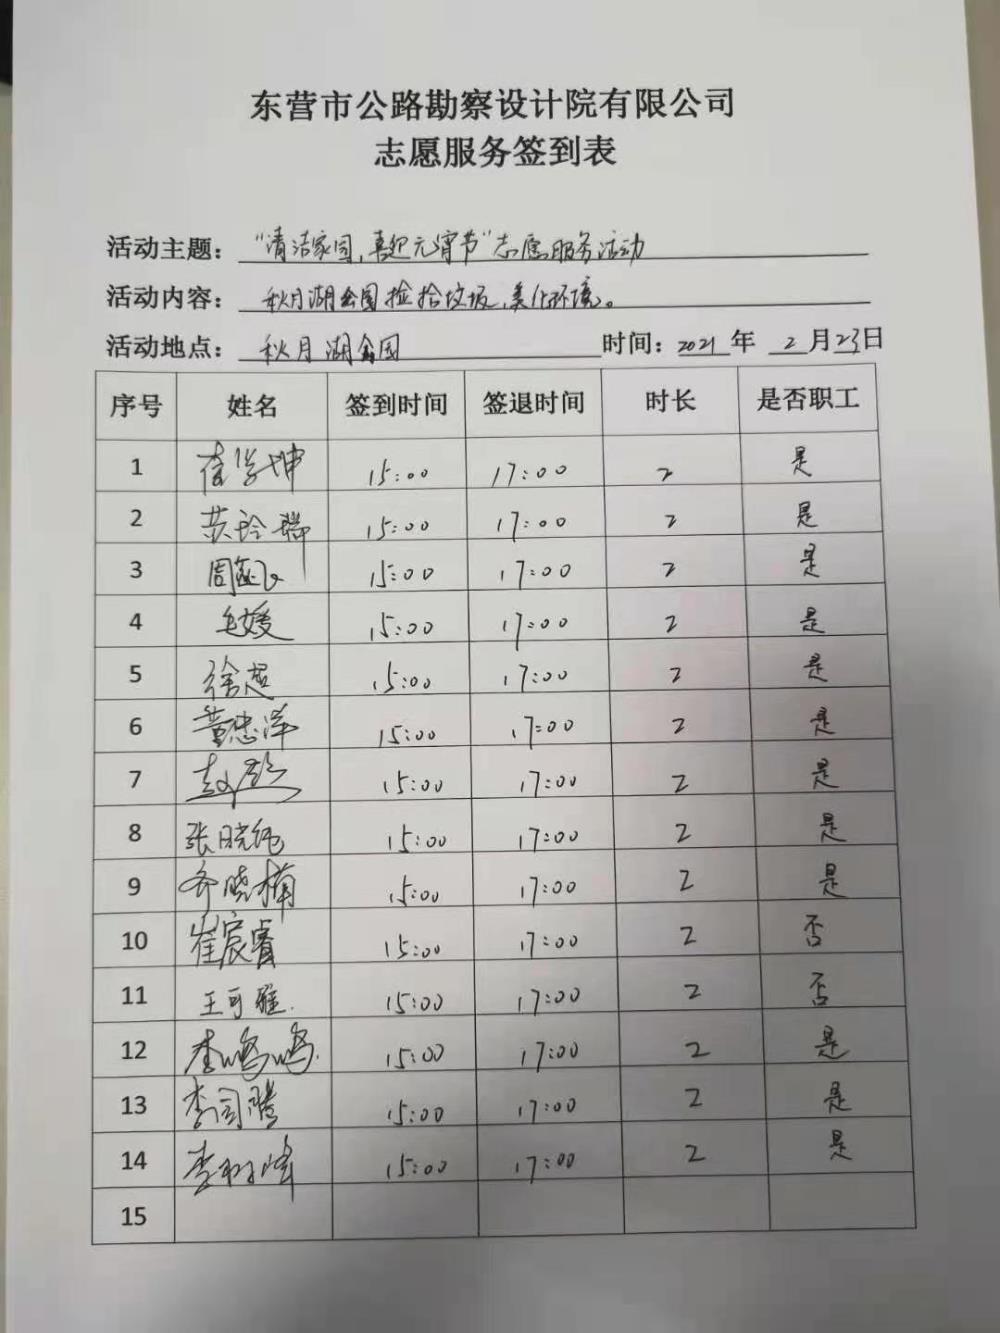 东营市公路勘察设计院有限公司
志愿服务签到表
活动主题：“清洁家园，喜迎元宵节”志愿服务活动
活动内容：秋月湖公园捡拾垃圾，美化环境。
活动地点：秋月湖公园 时间：2021年 2月23日
序号 姓名 签到时间 签退时间 时长 是否职工
1 15:00 17:00 2 是
2 15:00 17:00 2 是
3 15:00 17:00 2 是
4 毛媛 15:00 17:00 2 是
5 15:00 17:00 2 是
6 董忠洋 15:00 17:00 2 是
7 15:00 17:00 2 是
8 张晓纯 15:00 17:00 2 是
9 齐晓楠 15:00 17:00 2 是
10 崔宸睿 15:00 17:00 2 否
11 王可雅 15:00 17:00 2 否
12 李鸣鸣 15:00 17:00 2 是
13 李司腾 15:00 17:00 2 是
14 李树峰 15:00 17:00 2 是
15